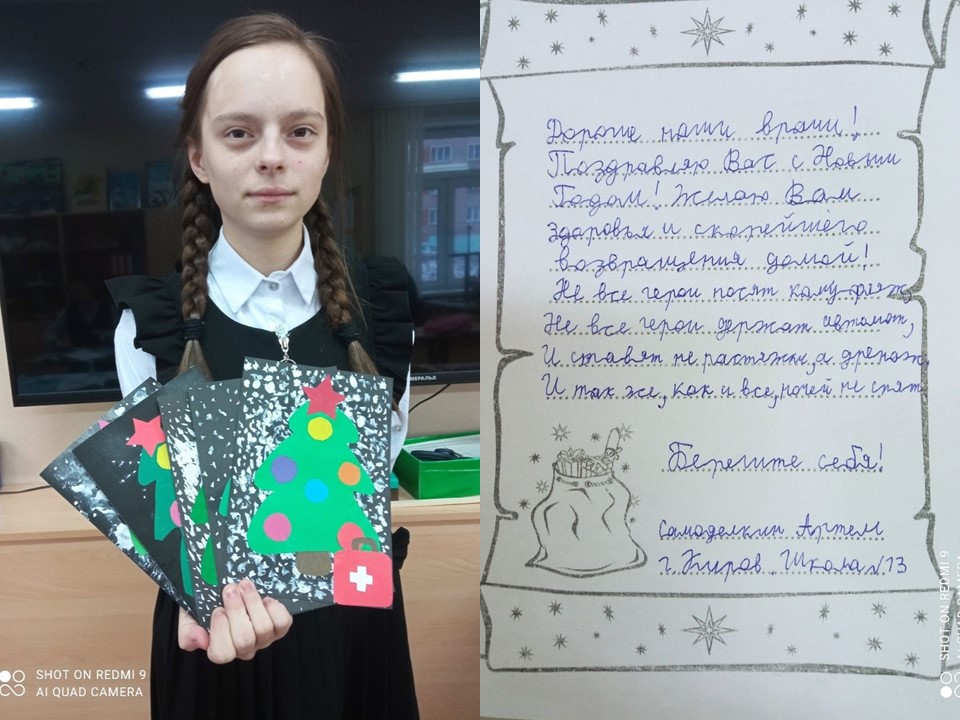 МЕРАЛЬД
SHOT ON REDMI 9
AI QUAD CAMERA
Дорогие наши врачи!
Поздравляю Вас с Новым
Годом! Желаю Вам
здоровья и скорейшего
возвращения домой!
Не все герои носят камуфляж,
Не все герои держат автомат,
И ставят не растяжки, а дренаж.
И так же, как и все, ночей не спят.
Берегите себя!
Самоделкин Артем
г. Киров Школа №13
SHOT ON REDMI 9